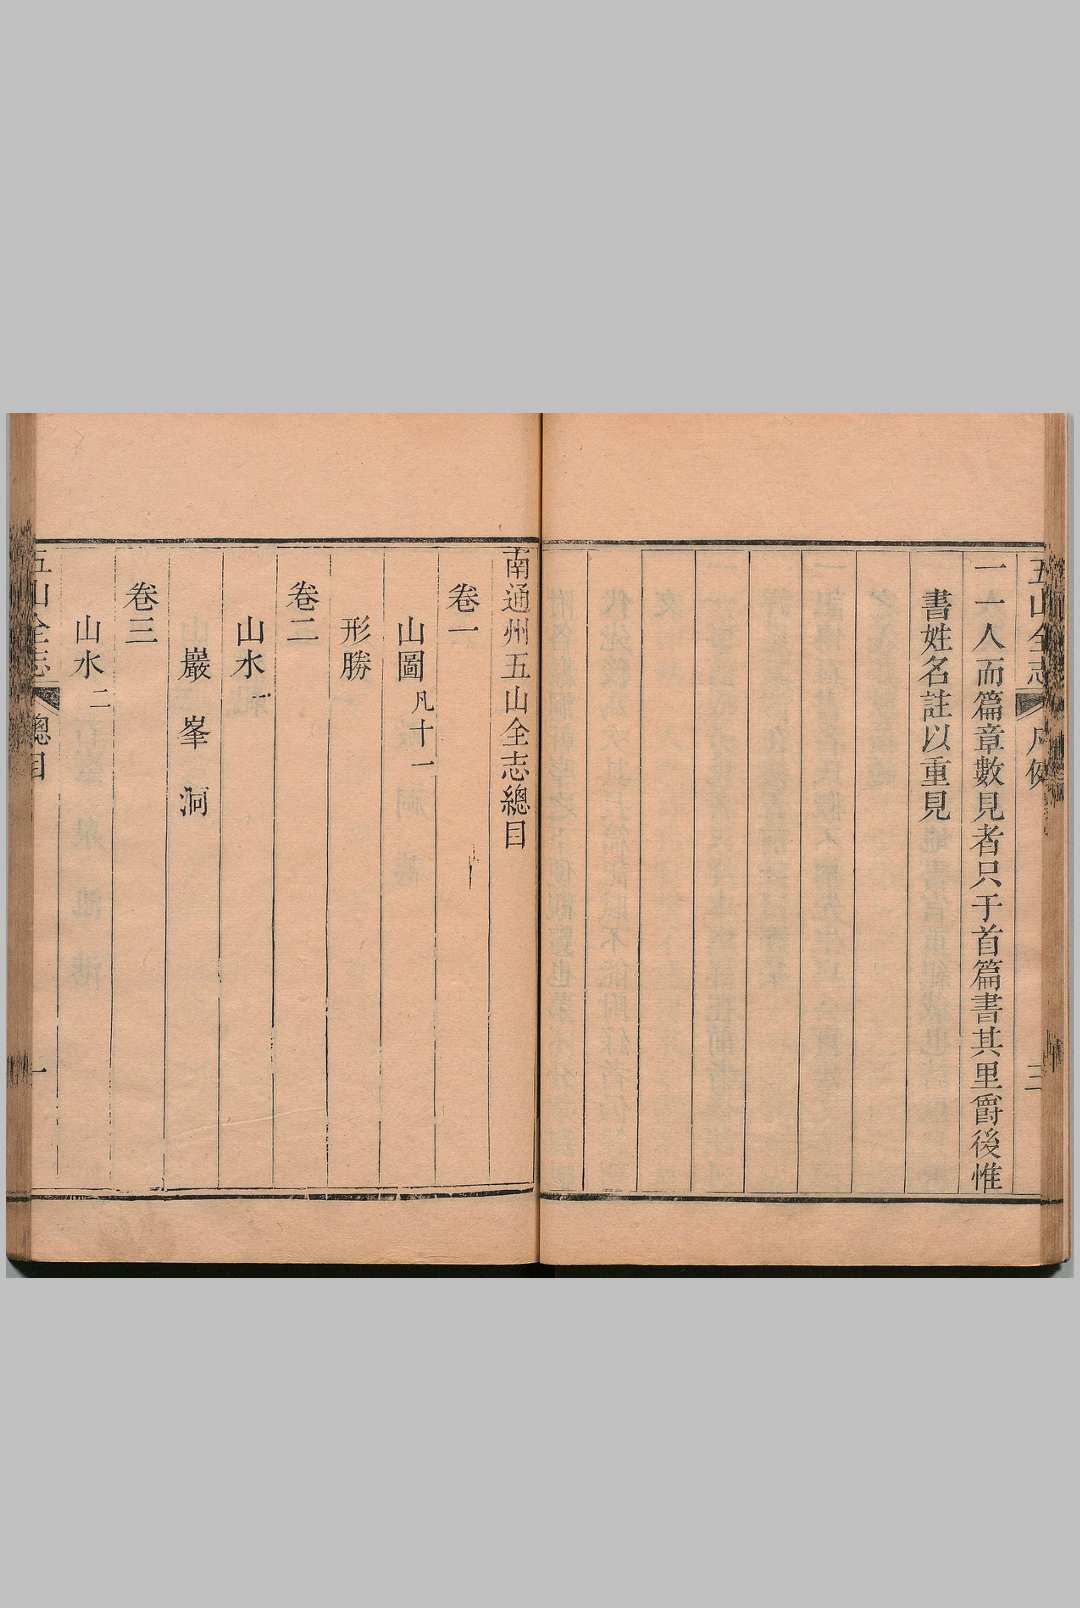 五山全志 凡例 三
一一人而篇章數見者只于首篇書其里爵後惟
書姓名註以重見
南通州五山全志總目
卷一
山圖 凡十一
形勝
卷二
山水 一
巖 峯 洞
卷三
山水 二
五山全志 總目 一